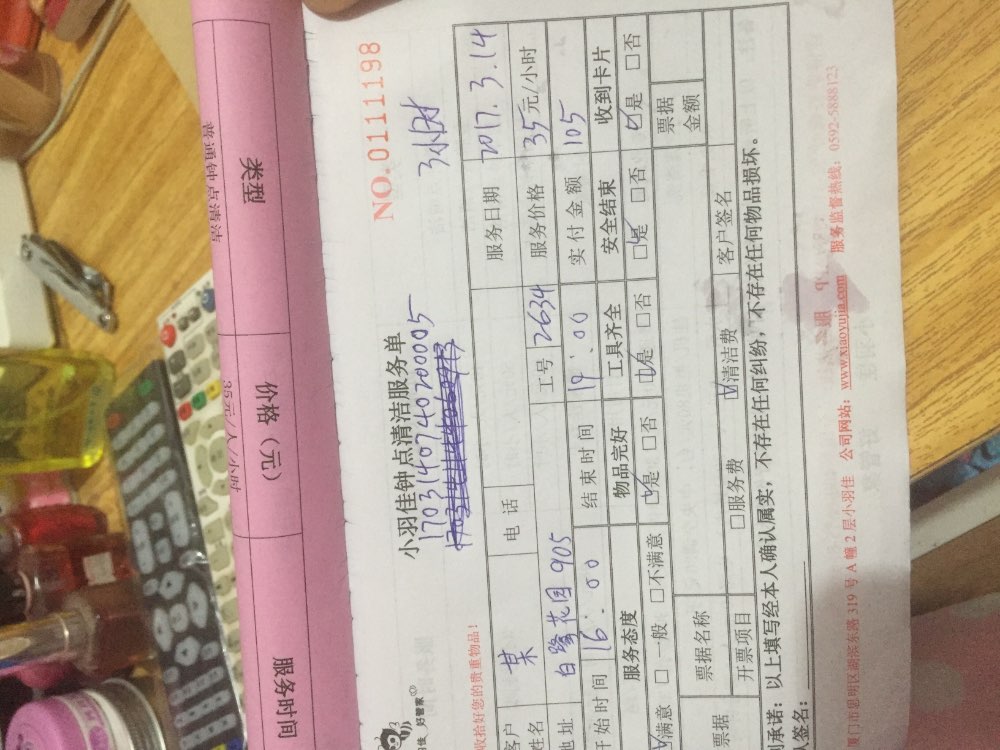 类型 价格（元） 服务时间
普通钟点清洁 35元/人/小时
NO.0111198
小羽佳钟点清洁服务单
3小时
17031407402000005
好管家
收拾好您的贵重物品！
客户姓名 某 电话 服务日期 2017.3.14
地址 白鹭花园905 工号 2634 服务价格 35元/小时
开始时间 16:00 结束时间 19:00 实付金额 105
服务态度 物品完好 工具齐全 安全结束 收到卡片
☑满意 □一般 □不满意 ☑是 □否 ☑是 □否 ☑是 □否 ☑是 □否
票据 票据名称 票据金额
开票项目 □服务费 ☑清洁费 客户签名
承诺：以上填写经本人确认属实，不存在任何纠纷，不存在任何物品损坏。
签名：
厦门市思明区湖滨东路319号A幢2层小羽佳 公司网站：www.xiaoyujia.com 服务监督热线：0592-5888123